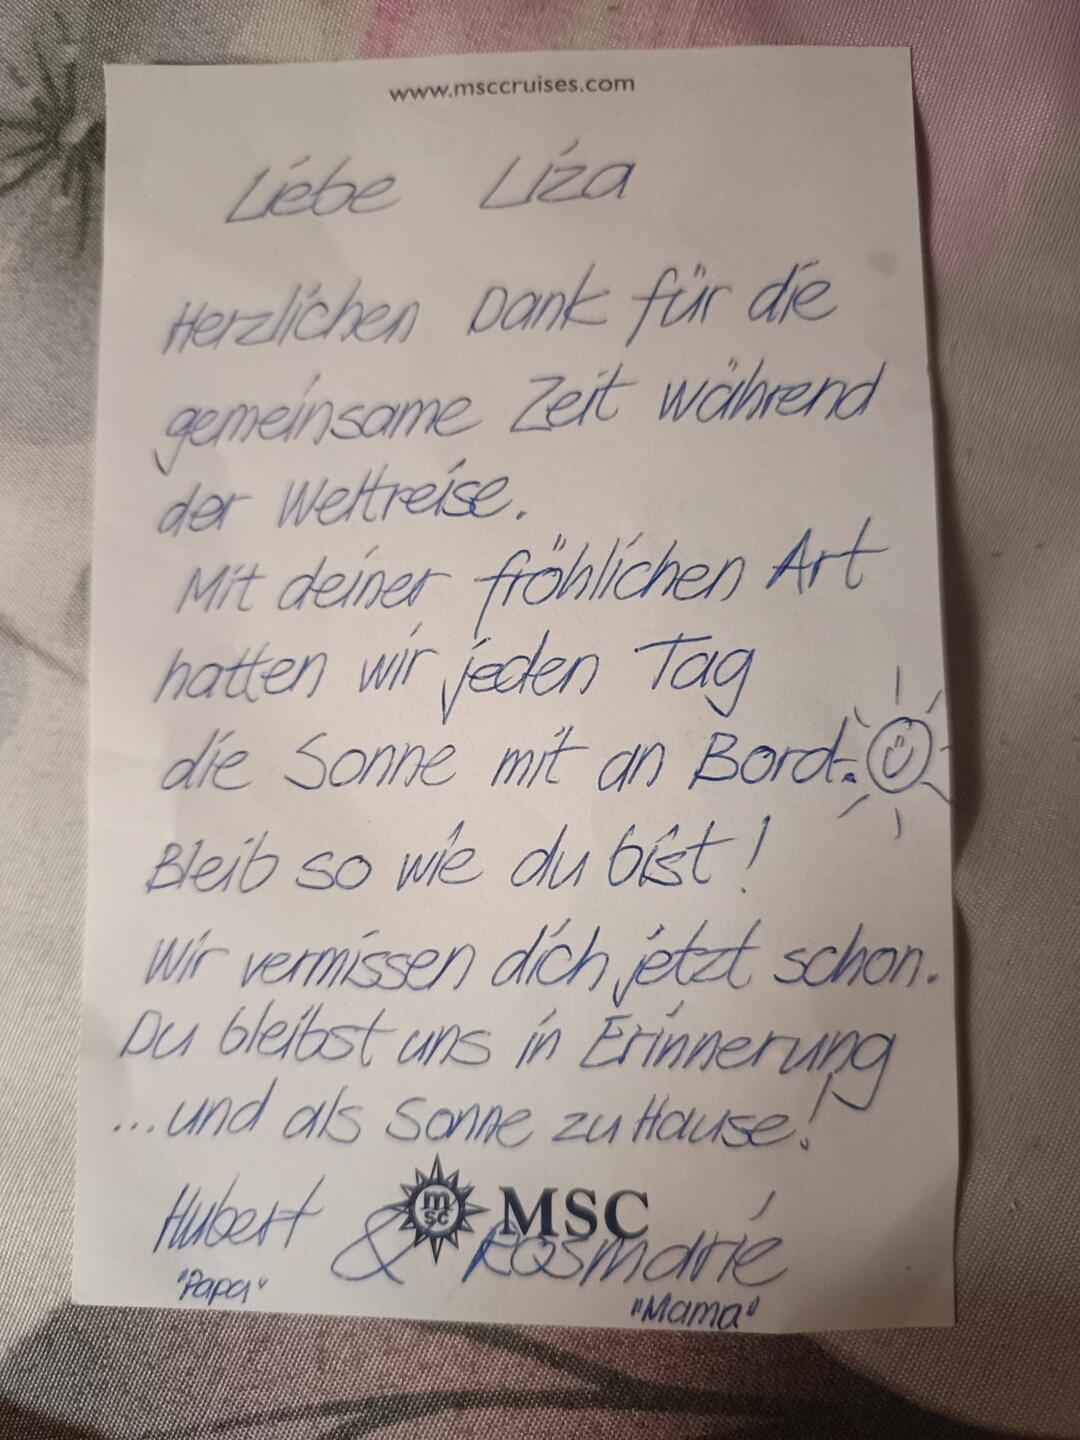 www.msccruises.com
Liebe Liza
Herzlichen Dank für die
gemeinsame Zeit während
der Weltreise.
Mit deiner fröhlichen Art
hatten wir jeden Tag
die Sonne mit an Bord.
Bleib so wie du bist!
Wir vermissen dich jetzt schon.
Du bleibst uns in Erinnerung
...und als Sonne zu Hause!
Hubert & Rosmarie
"Papa" "Mama"
msc MSC